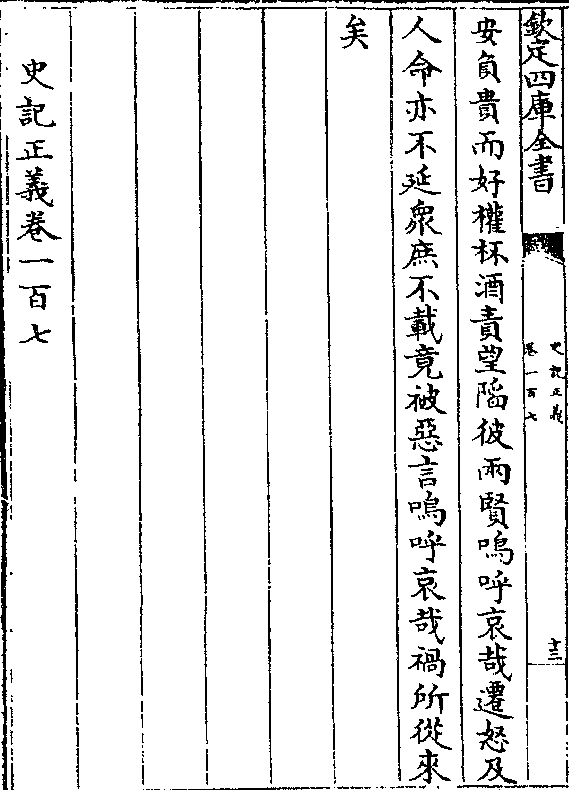 欽定四庫全書
史記正義
卷一百七
十三
安負貴而好權杯酒責望陷彼兩賢嗚呼哀哉遷怒及
人命亦不延衆庶不載竟被惡言嗚呼哀哉禍所從來
矣
史記正義卷一百七